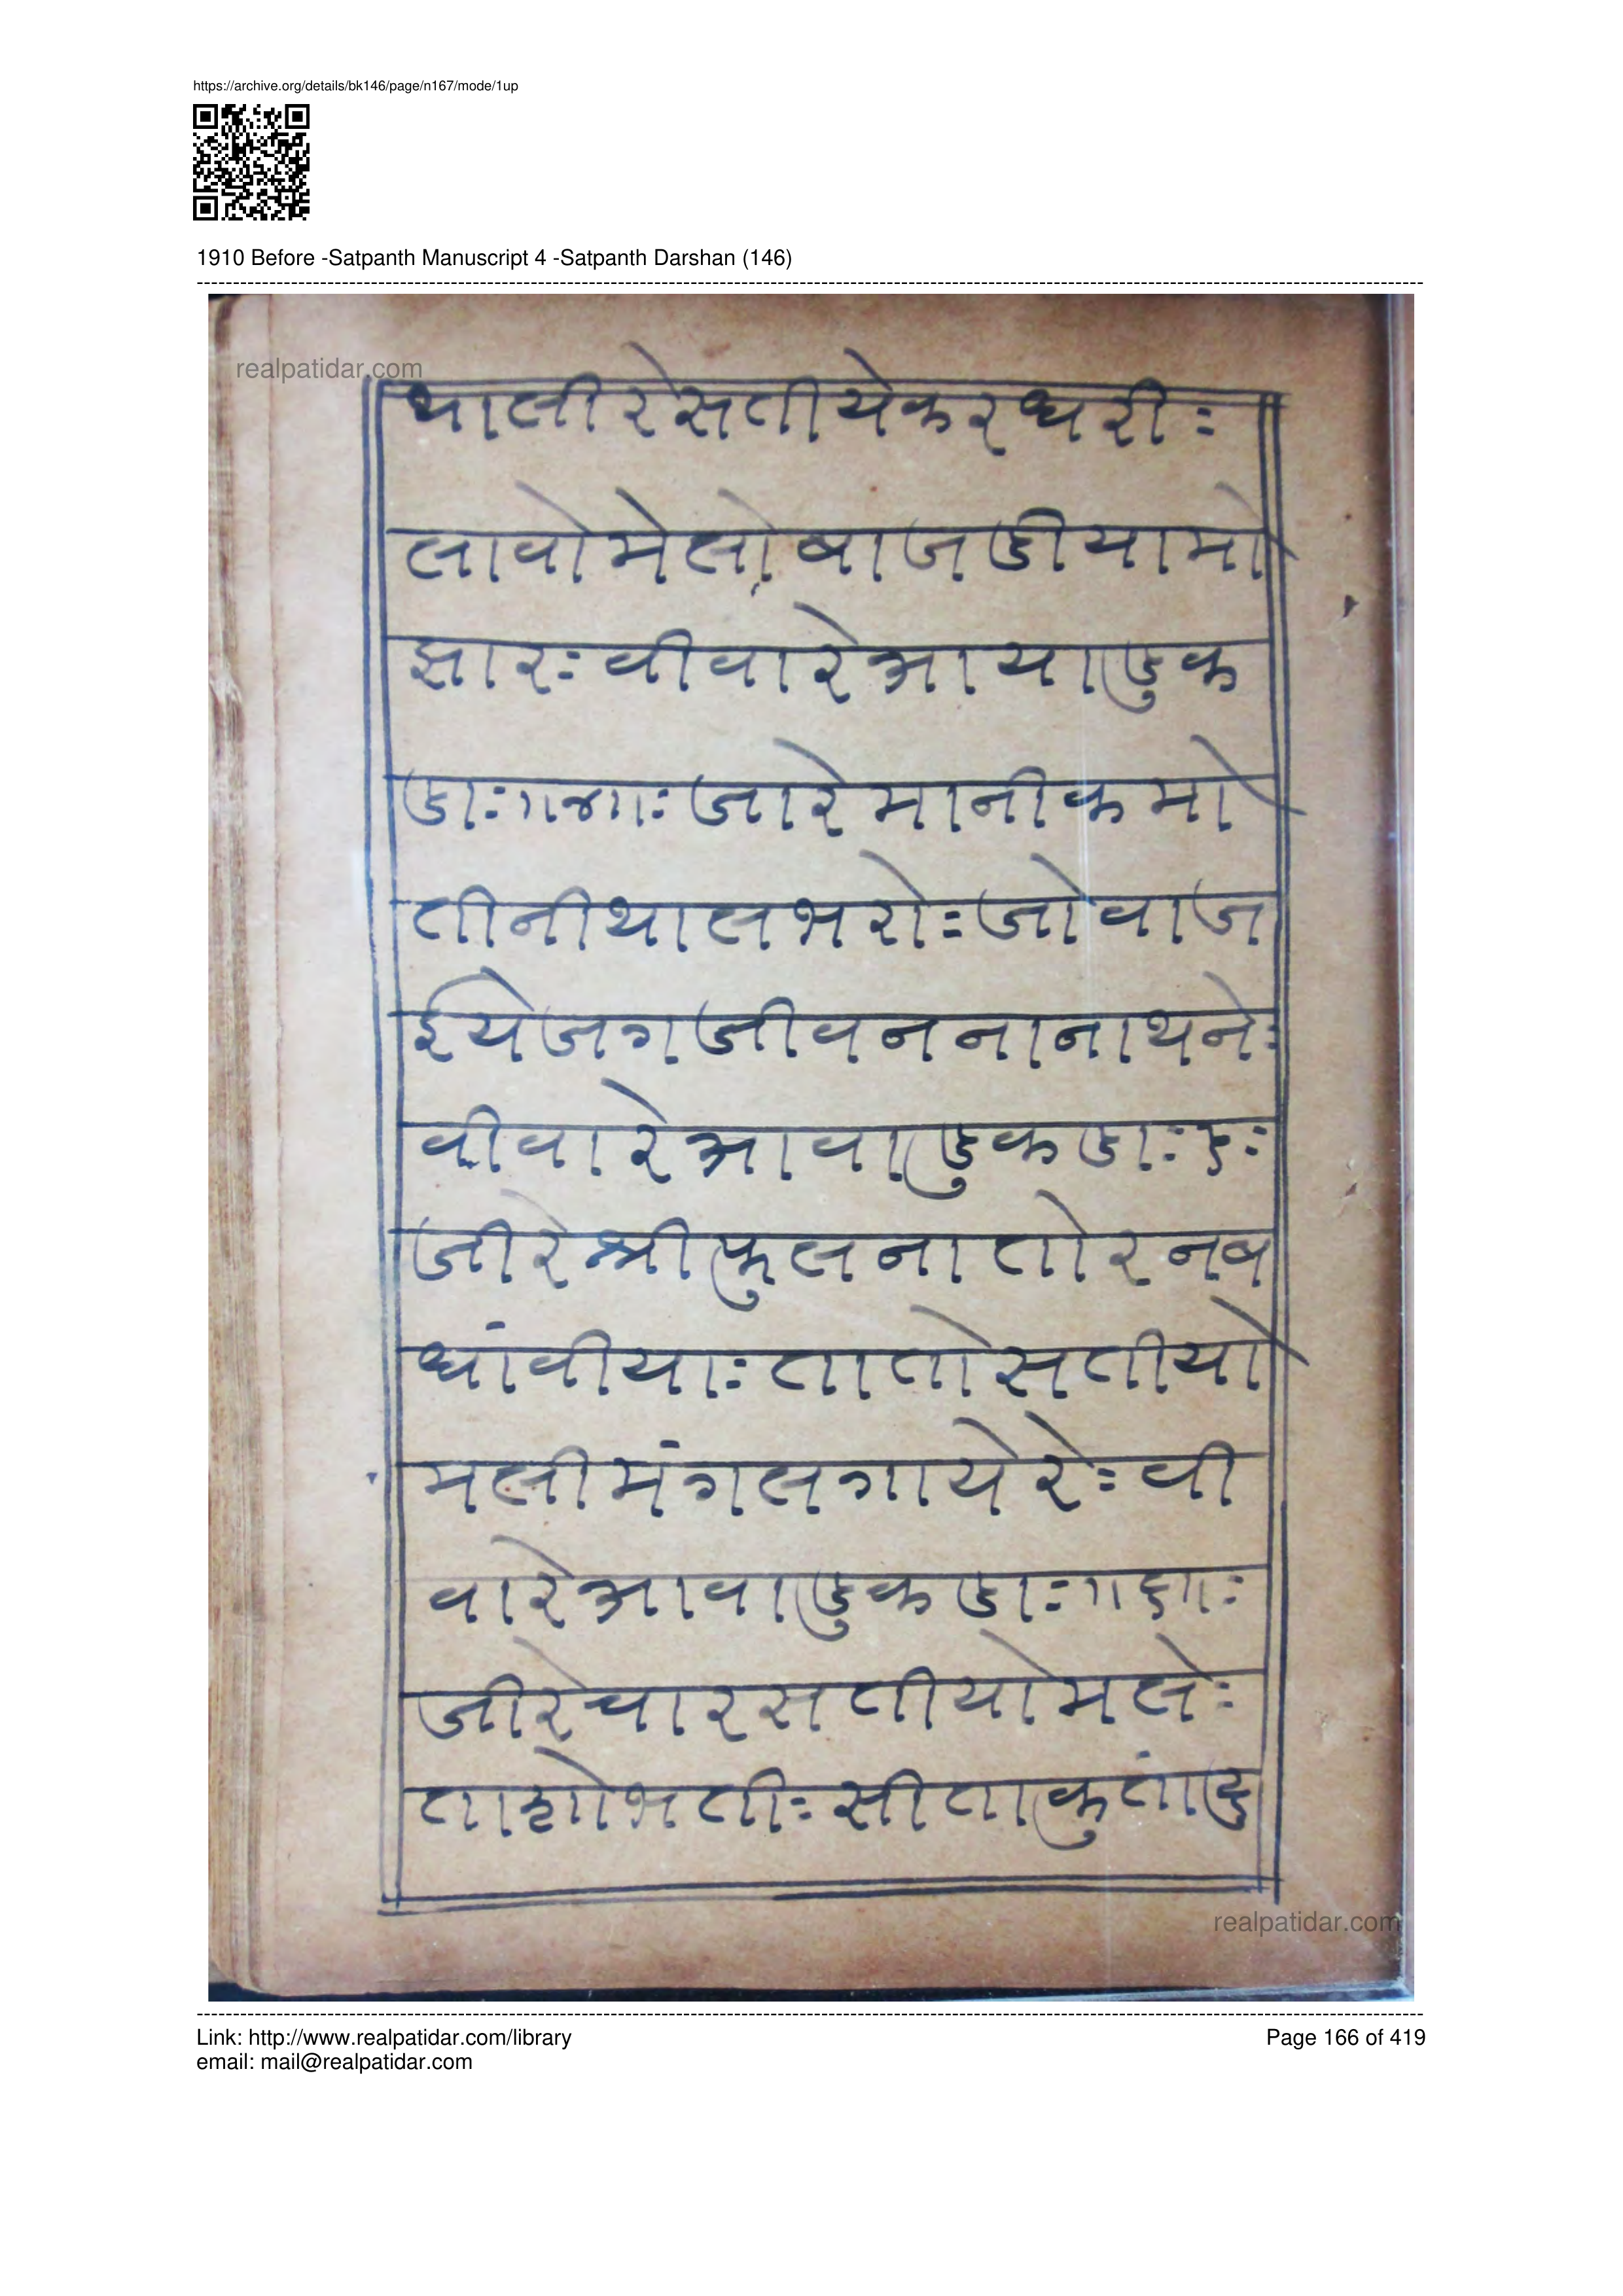 https://archive.org/details/bk146/page/n167/mode/1up
1910 Before -Satpanth Manuscript 4 -Satpanth Darshan (146)
realpatidar.com
थालीरेसतीयेकरधरीः
लावोमेलोबाजडीयामो
झारःवीवारेआयाडुक
डाः॥४॥ःजारेमानीकमो
तीनीथालभरोःजोवाज
ईयेजगजीवननानाथनेः
वीवारेआवाडुकडाः५ः
जीरेश्रीफुलनातोरनब
धांवीयाःतातोसतीयो
मलीमंगलगायेरेःवी
वारेआवाडुकडाः॥६॥ः
जीरेचारसतीयोमलेः
ताशोभतीःसीताकुतांदु
realpatidar.com
Link: http://www.realpatidar.com/library
Page 166 of 419
email: mail@realpatidar.com